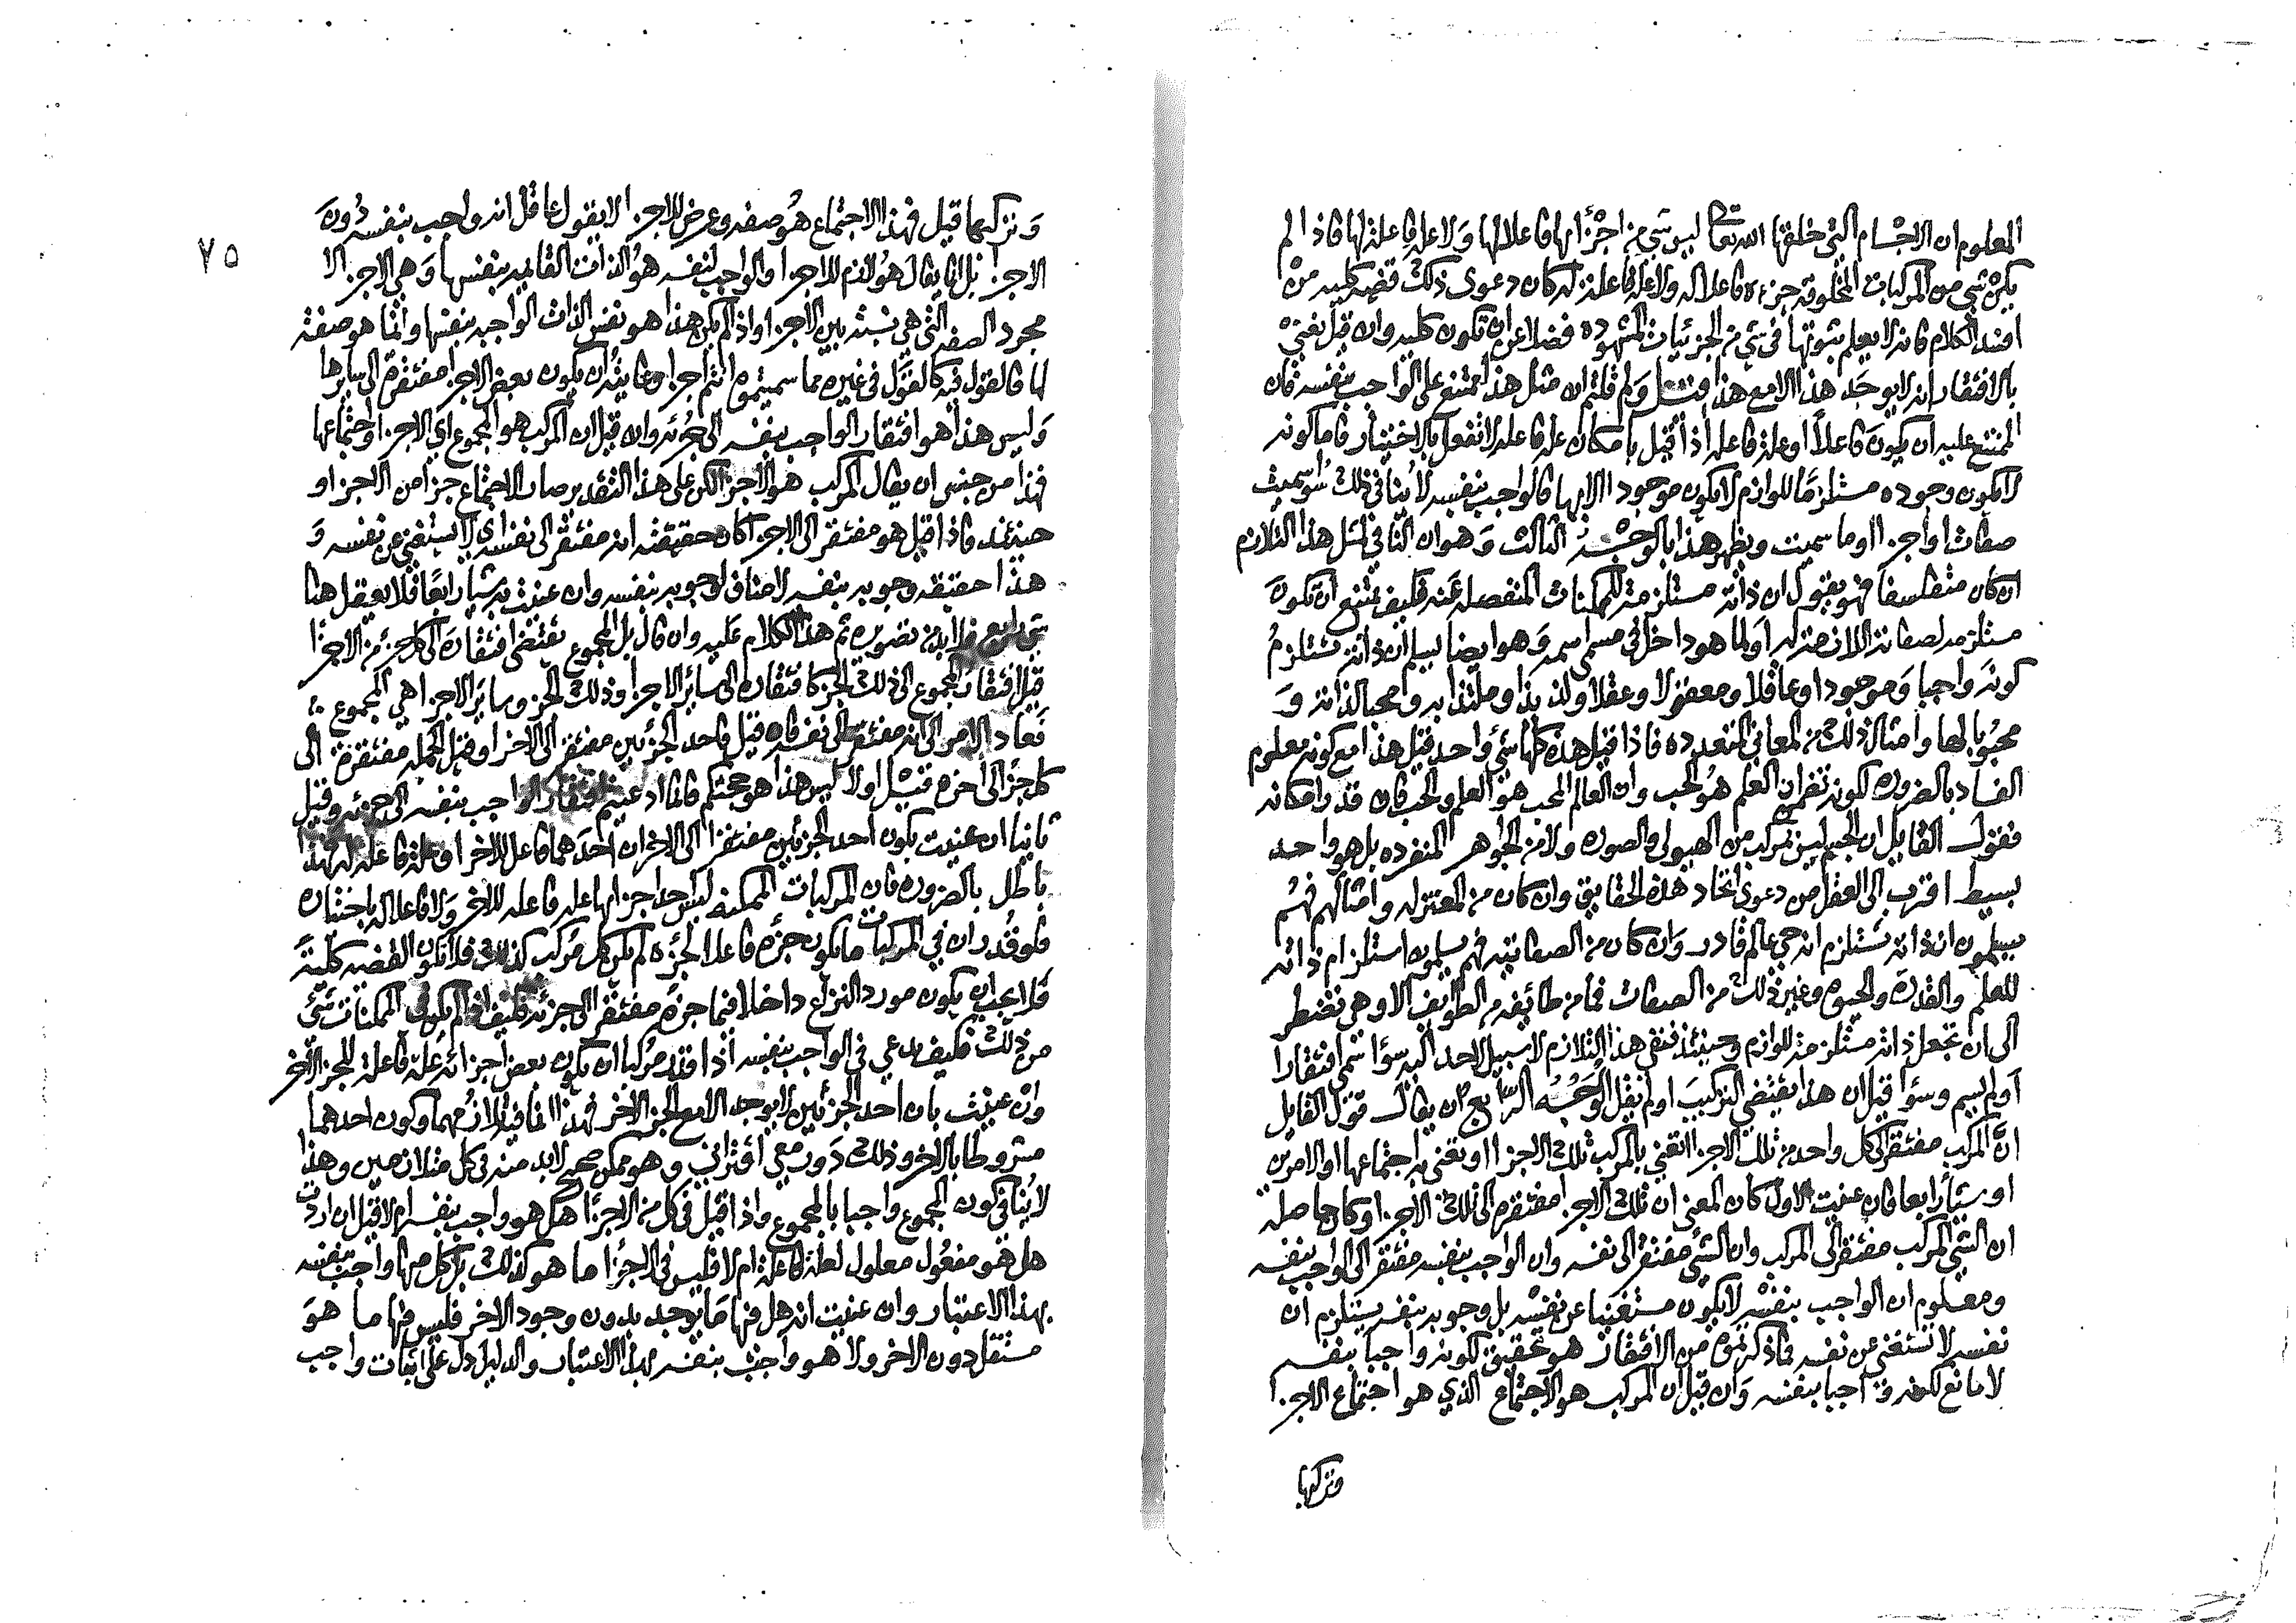 المعلوم ان الاجسام التي خلقها الله تعا ليس شي من اجزائها فاعلا لها ولا علة فاعلة لها فاذا لم
يكن شي من المركبات المخلوقة جزءه فاعلا له ولا علة فاعلة له كان دعوى ذلك قضيه كليه من
افسد الكلام فانه لا يعلم ثبوتها في شي من الجزئيات المشهوده فضلا عن ان تكون كليه وان قيل نعني
بالافتقار انه لا يوجد هذا الا مع هذا قيل ولم قلتم ان مثل هذا ممتنع على الواجب بنفسه فان
الممتنع عليه ان يكون فاعلا او علة فاعله اذا قيل بامكان علة فاعله لا تفعل بالاختيار فاما كونه
لا يكون وجوده مستلزما للوازم لا يكون موجودا الا بها فالواجب بنفسه لا ينافي ذلك سوا سميت
صفات او اجزا او ما سميت ويظهر هذا بالوجه الثالث وهو ان النافي لمثل هذا التلازم
ان كان متفلسفا فهو يقول ان ذاته مستلزمة للممكنات المنفصله عنه فكيف يمتنع ان تكون
مستلزمه لصفاته اللازمة له او لما هو داخل في مسمى اسمه وهو ايضا يسلم ان ذاته تستلزم
كونه واجبا وموجودا وعاقلا ومعقولا وعقلا ولذيذا وملتذا به ومحبا لذاته و
محبوبا لها وامثال ذلك من المعاني المتعدده فاذا قيل هذه كلها شئ واحد قيل هذا مع كونه معلوم
الفساد بالضروره لكونه تضمن ان العلم هو الحب وان العالم المحب هو العلم والحب فان قدر امكانه
فقول القايل ان الجسم ليس بمركب من الهيولى والصوره ولا من الجواهر المنفرده بل هو واحد
بسيط اقرب الى العقل من دعوى اتحاد هذه الحقايق وان كان من المعتزله وامثالهم فهم
يسلمون ان ذاته تستلزم انه حي عالم قادر وان كان من الصفاتيه فهم يسلمون استلزام ذاته
للعلم والقدرة والحيوه وغير ذلك من الصفات فما من طائفه من الطوايف الا وهي تضطر
الى ان تجعل ذاته مستلزمة للوازم وحينئذ فنفي هذا التلازم لا سبيل لاحد اليه سوا سمي افتقارا
او لم يسم وسوا قيل ان هذا يقتضي التركيب او لم يقل الوجه الرابع ان يقال قول القايل
ان المركب مفتقر الى كل واحد من تلك الاجزا اتعني بالمركب تلك الاجزا او تعني به اجتماعها او الامرين
او شيأ رابعا فان عنيت الاول كان المعنى ان تلك الاجزا مفتقره الى تلك الاجزا وكان حاصله
ان الشي المركب مفتقر الى المركب وان الشئ مفتقر الى نفسه وان الواجب بنفسه مفتقر الى الواجب بنفسه
ومعلوم ان الواجب بنفسه لا يكون مستغنيا عن نفسه بل وجوبه بنفسه يستلزم ان
نفسه لا تستغني عن نفسه فما ذكرتموه من الافتقار هو تحقيق لكونه واجبا بنفسه
لا مانع لكونه واجبا بنفسه وان قيل ان المركب هو الاجتماع الذي هو اجتماع الاجزا
وتركبها
٧٥
وتركبها قيل فهذا الاجتماع هو صفه وعرض للاجزا لا يقول عاقل انه واجب بنفسه دون
الاجزا بل انما يقال هو لازم للاجزا والواجب لنفسه هو الذات القايمه بنفسها وهي الاجزا لا
مجرد الصفه التي هي نسبة بين الاجزا واذا لم يكن هذا هو نفس الذات الواجبه بنفسها وانما هو صفة
لها فالقول فيه كالقول في غيره مما سميتموه انتم اجزا وغايته ان يكون بعض الاجزا مفتقره الى سايرها
وليس هذا هو افتقار الواجب بنفسه الى جزئه وان قيل ان المركب هو المجموع اي الاجزا واجتماعها
فهذا من جنس ان يقال المركب هو الاجزا لكن على هذا التقدير صار الاجتماع جزا من الاجزا و
حينئذ فاذا قيل هو مفتقر الى الاجزا كان حقيقته انه مفتقر الى نفسه اي لا يستغني عن نفسه و
هذا حقيقه وجوبه بنفسه لا مناف لوجوبه بنفسه وان عنيت به شيأ رابعا فلا يعقل هنا
شي رابع فلا بد من تصويره ثم هذا الكلام عليه وان قال بل المجموع يقتضي افتقاره الى كل جزء من الاجزا
قيل افتقار المجموع الى ذلك الجزء كافتقاره الى سائر الاجزا وذلك الجزء وساير الاجزا هي المجموع
فعاد الامر الى انه مفتقر الى نفسه فان قيل فاحد الجزئين مفتقر الى الاخر او قيل الجمله مفتقرة الى
كل جزء الى اخره قيل اولا ليس هذا هو حجتكم فانما ادعيتم افتقار الواجب بنفسه الى جزئه وقيل
ثانيا ان عنيت بكون احد الجزئين مفتقرا الى الاخر ان احدهما فاعل للاخر او علة فاعله له فهذا
باطل بالضروره فان المركبات الممكنه ليس احد اجزائها علة فاعله للاخر ولا فاعلا له باختياره
فلو قدر ان في المركبات ما يكون جزءه فاعلا لجزءه لم يكن كل مركب كذلك فلا تكون القضيه كلية
فلا يجب ان يكون مورد النزاع داخلا فيما جزءه مفتقر الى جزئه فكيف اذا لم يكن في الممكنات شئ
من ذلك فكيف يدعى في الواجب بنفسه اذا قدر مركبا ان يكون بعض اجزائه علة فاعلة للجزء الاخر
وان عنيت بان احد الجزئين لا يوجد الا مع الجزء الاخر فهذا انما فيه تلازمهما وكون احدهما
مشروطا بالاخر وذلك دور معي اقتراني وهو ممكن صحيح لا بد منه في كل متلازمين وهذا
لا ينافي كون المجموع واجبا بالمجموع واذا قيل في كل من الاجزا هل هو واجب بنفسه ام لا قيل ان اردت
هل هو مفعول معلول لعلة فاعلة ام لا فليس في الاجزا ما هو كذلك بل كل منها واجب بنفسه
بهذا الاعتبار وان عنيت انه هل فيها ما يوجد بدون وجود الاخر فليس فيها ما هو
مستقل دون الاخر ولا هو واجب بنفسه بهذا الاعتبار والدليل دل على اثبات واجب